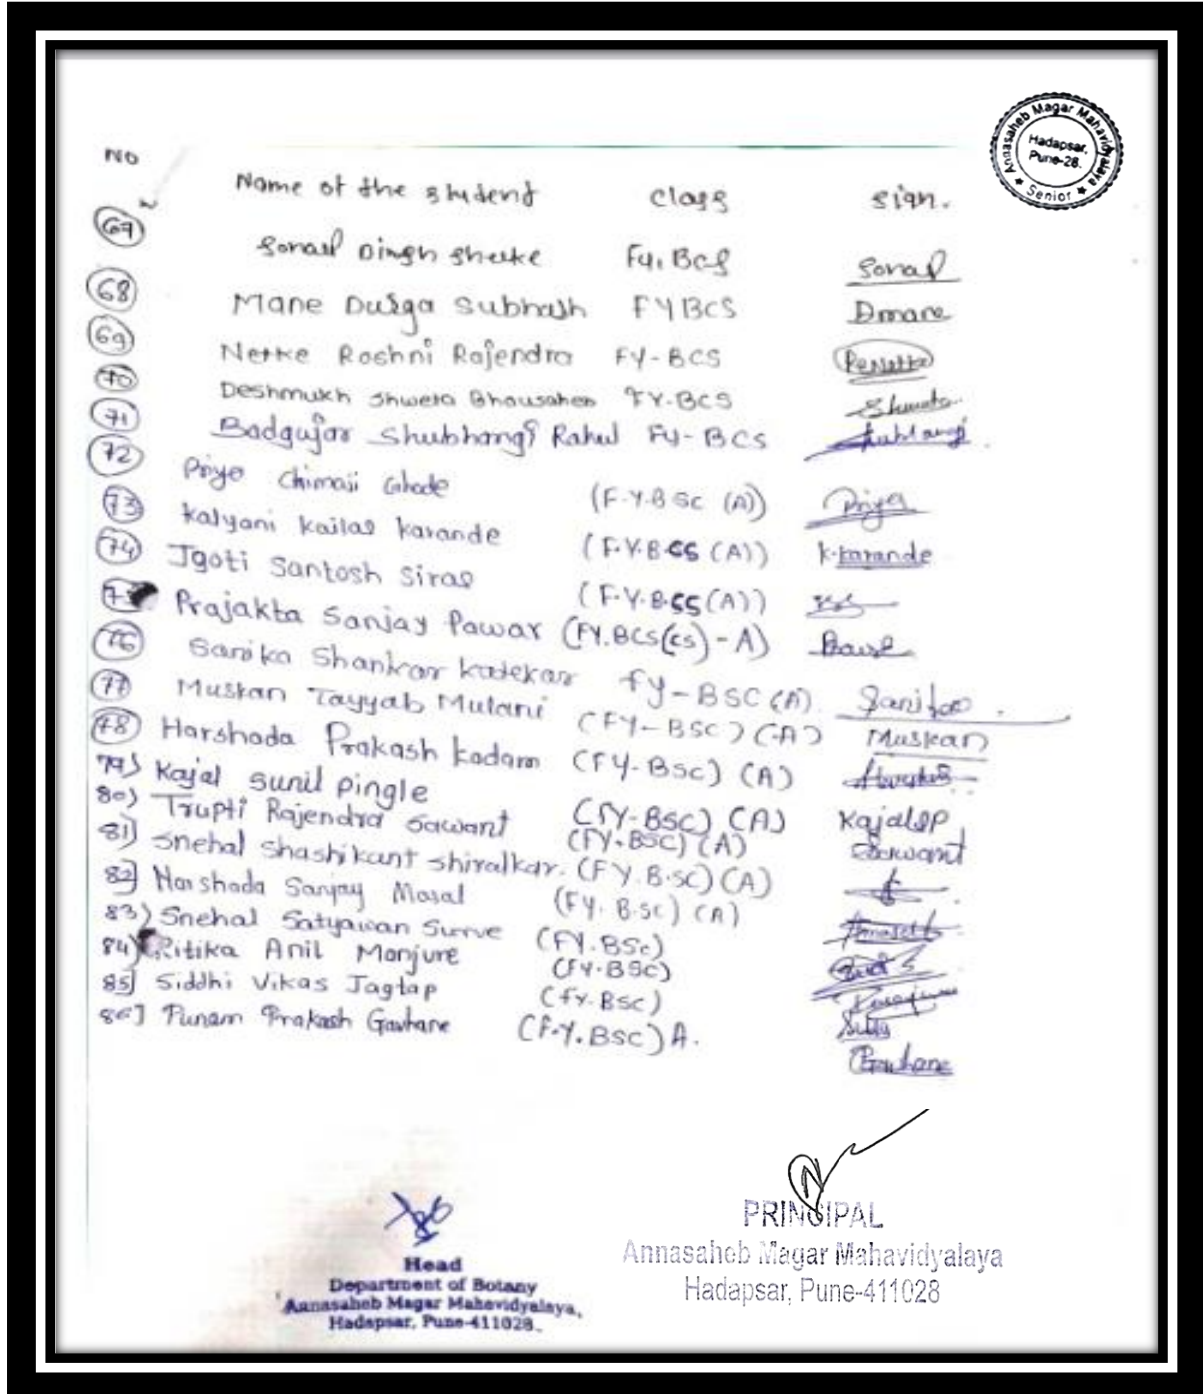 Annasaheb Magar Mahavidyalaya
Hadapsar,
Pune-28.
★ Senior ★
No Name of the student class sign.
67 Sonal Dingh Shelke Fy. BCS Sonal
68 Mane Durga Subhash FYBCS Dmane
69 Netke Roshni Rajendra FY-BCS
70 Deshmukh Shweta Bhausaheb FY-BCS Shweta
71 Badgujar Shubhangi Rahul Fy-BCS Shubhangi
72 Priya Chimaji Ghode (F.Y.BSC (A)) Priya
73 Kalyani Kailas Karande (F.Y.BCS (A)) K.Karande
74 Jyoti Santosh Siras (F.Y.BCS (A))
75 Prajakta Sanjay Pawar (FY.BCS(CS)-A)
76 Sanika Shankar Katekar Fy-BSC (A) Sanika
77 Muskan Tayyab Mulani (FY-BSC) (A) Muskan
78 Harshada Prakash Kadam (FY-BSC) (A)
79) Kajal Sunil Pingle (SY-BSC) (A) KajalSP
80) Trupti Rajendra Sawant (FY-BSC) (A) Sawant
81) Snehal Shashikant Shiralkar. (F.Y.B.SC) (A)
82] Harshada Sanjay Masal (FY.B.SC) (A)
83) Snehal Satyawan Surve (FY.BSC)
84) Ritika Anil Monjure (FY.BSC)
85] Siddhi Vikas Jagtap (FY.BSC)
86] Punam Prakash Gavhane (F.Y.BSC) A. Gavhane
PRINCIPAL
Annasaheb Magar Mahavidyalaya
Hadapsar, Pune-411028
Head
Department of Botany
Annasaheb Magar Mahavidyalaya,
Hadapsar, Pune-411028.